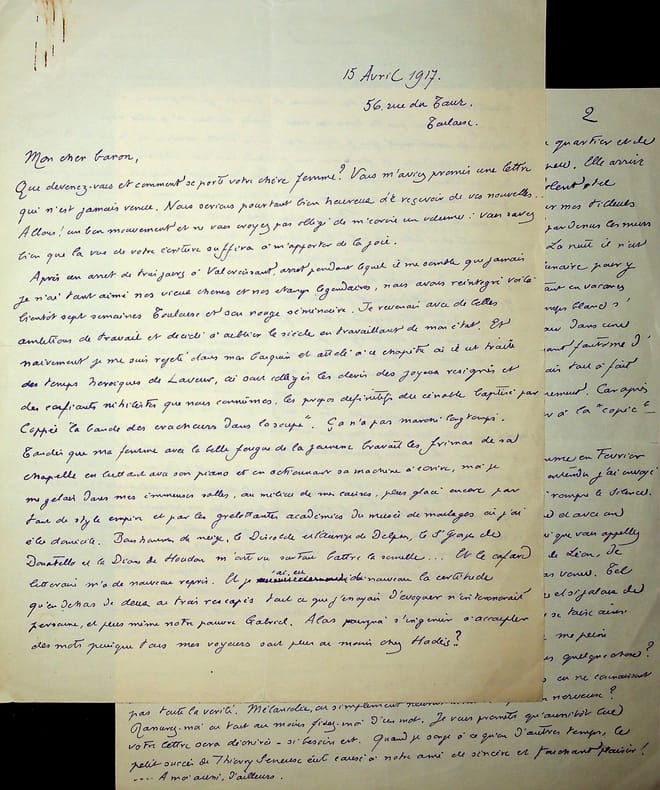 15 Avril 1917.
56, rue du Taur.
Toulouse.
Mon cher baron,
Que devenez-vous et comment se porte votre chère femme? Vous m'aviez promis une lettre
qui n'est jamais venue. Nous serions pourtant bien heureux de recevoir de vos nouvelles...
Allons! un bon mouvement et ne vous croyez pas obligé de m'écrire un volume: vous savez
bien que la vue de votre écriture suffira à m'apporter de la joie.
Après un arrêt de trois jours à Valcroissant, arrêt pendant lequel il me semble que jamais
je n'ai tant aimé nos vieux chênes et nos étangs légendaires, nous avons réintégré voilà
bientôt sept semaines Toulouse et son rouge séminaire. Je revenais avec de belles
ambitions de travail et décidé à oublier le siècle en travaillant de mon état. Et
naïvement je me suis rejeté dans mon bouquin et attelé à ce chapitre où il est traité
des temps héroïques de Laveur, où sont colligés les devis des joyeux résignés et
des confiants nihilistes que nous connûmes, les propos définitifs du cénacle baptisé par
Coppée "la bande des cracheurs dans la soupe". Ça n'a pas marché longtemps.
Tandis que ma femme avec la belle fougue de la jeunesse bravait les frimas de sa
chapelle en luttant avec son piano et en actionnant sa machine à écrire, moi je
me gelais dans mes immenses salles, au milieu de mes caisses, plus glacé encore par
tant de style empire et par les grelottantes académies du musée de moulages où j'ai
élu domicile. Bonshommes de neige, le Discobole et l'Aurige de Delphes, le St Georges de
Donatello et la Diane de Houdon m'ont vu surtout battre la semelle... Et le cafard
littéraire m'a de nouveau repris. Et j'ai eu de nouveau la certitude
qu'en dehors de deux ou trois rescapés tout ce que j'essayais d'évoquer n'intéresserait
personne, et plus même notre pauvre Gabriel. Alors pourquoi s'ingénier à accoupler
des mots puisque tous mes voyeurs sont plus ou moins chez Hadès?
2
quartier et de
Elle arrive
mes tilleuls
les murs
La nuit il n'est
pour y
en vacances
blanc) s'
dans une
fantôme d'
tout à fait
Car après
à la "copie"
en Février
j'ai envoyé
rompre le silence.
et avec un
que vous appelez
de Léon, de
venu. Tel
et si jaloux de
se taise ainsi
me peine
quelque chose?
on ne connaissant
pas toute la vérité. Mélancolie, ou simplement
Rassurez-moi ou tout au moins fixez-moi d'un mot. Je vous promets qu'aussitôt lue
votre lettre sera déchirée - si besoin est. Quand je songe à ce qu'en d'autres temps, le
petit succès de Thierry Seneuse eût causé à notre ami de sincère et touchant plaisir!
.... A moi aussi, d'ailleurs.